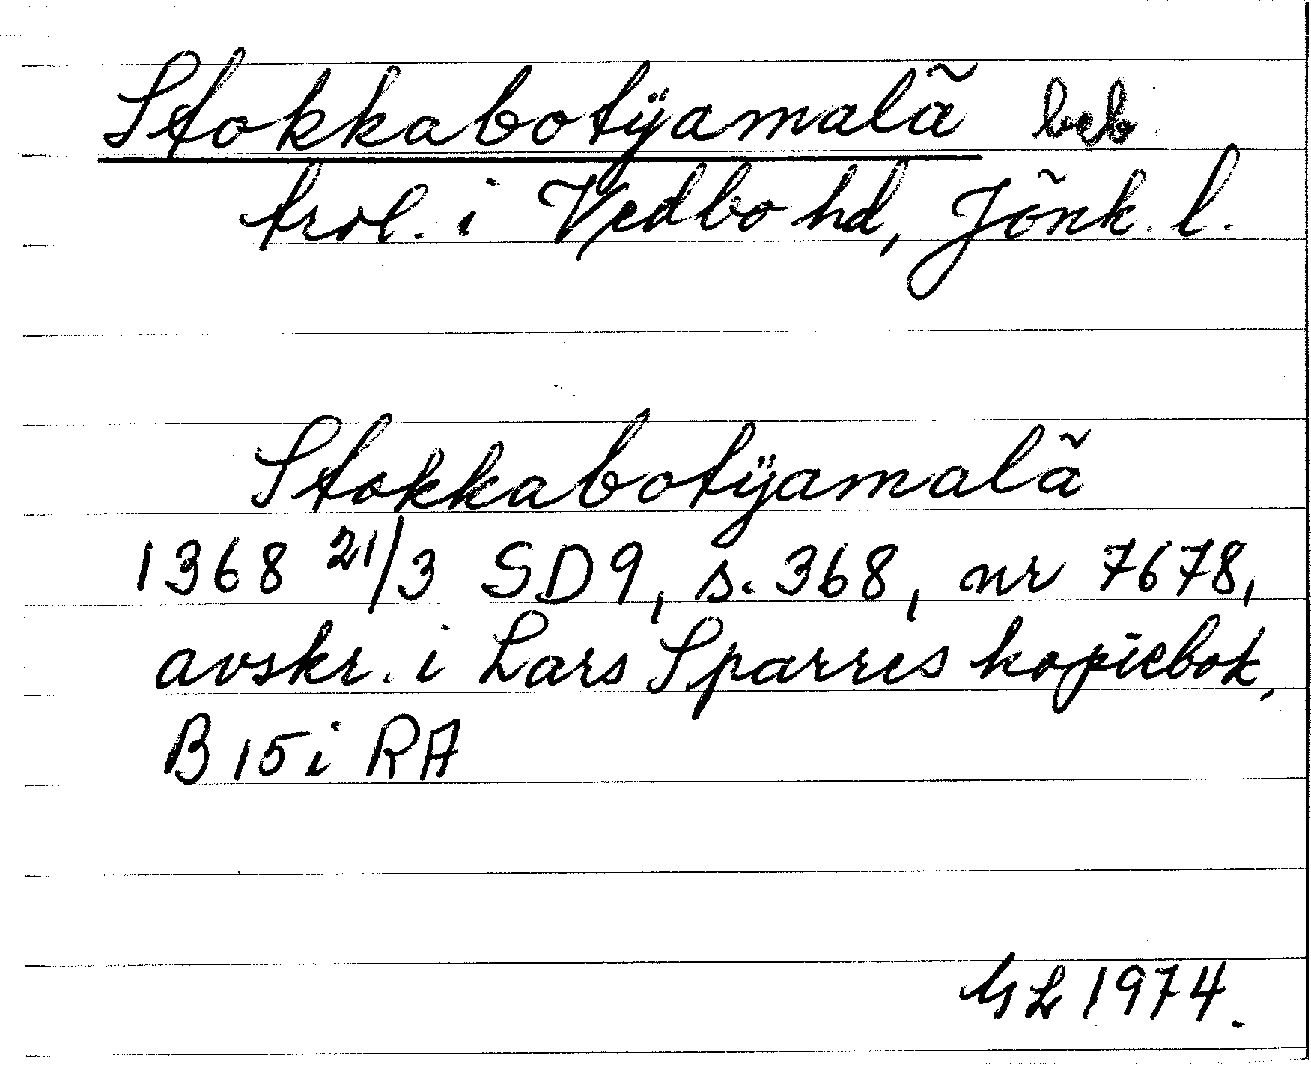 Stokkabotÿamalã beb
trol. i Vedbo hd, Jönk. l.
Stokkabotÿamalã
1368 21/3 SD9, s. 368, nr 7678,
avskr. i Lars Sparres kopiebok,
B 15 i RA
GL 1974.